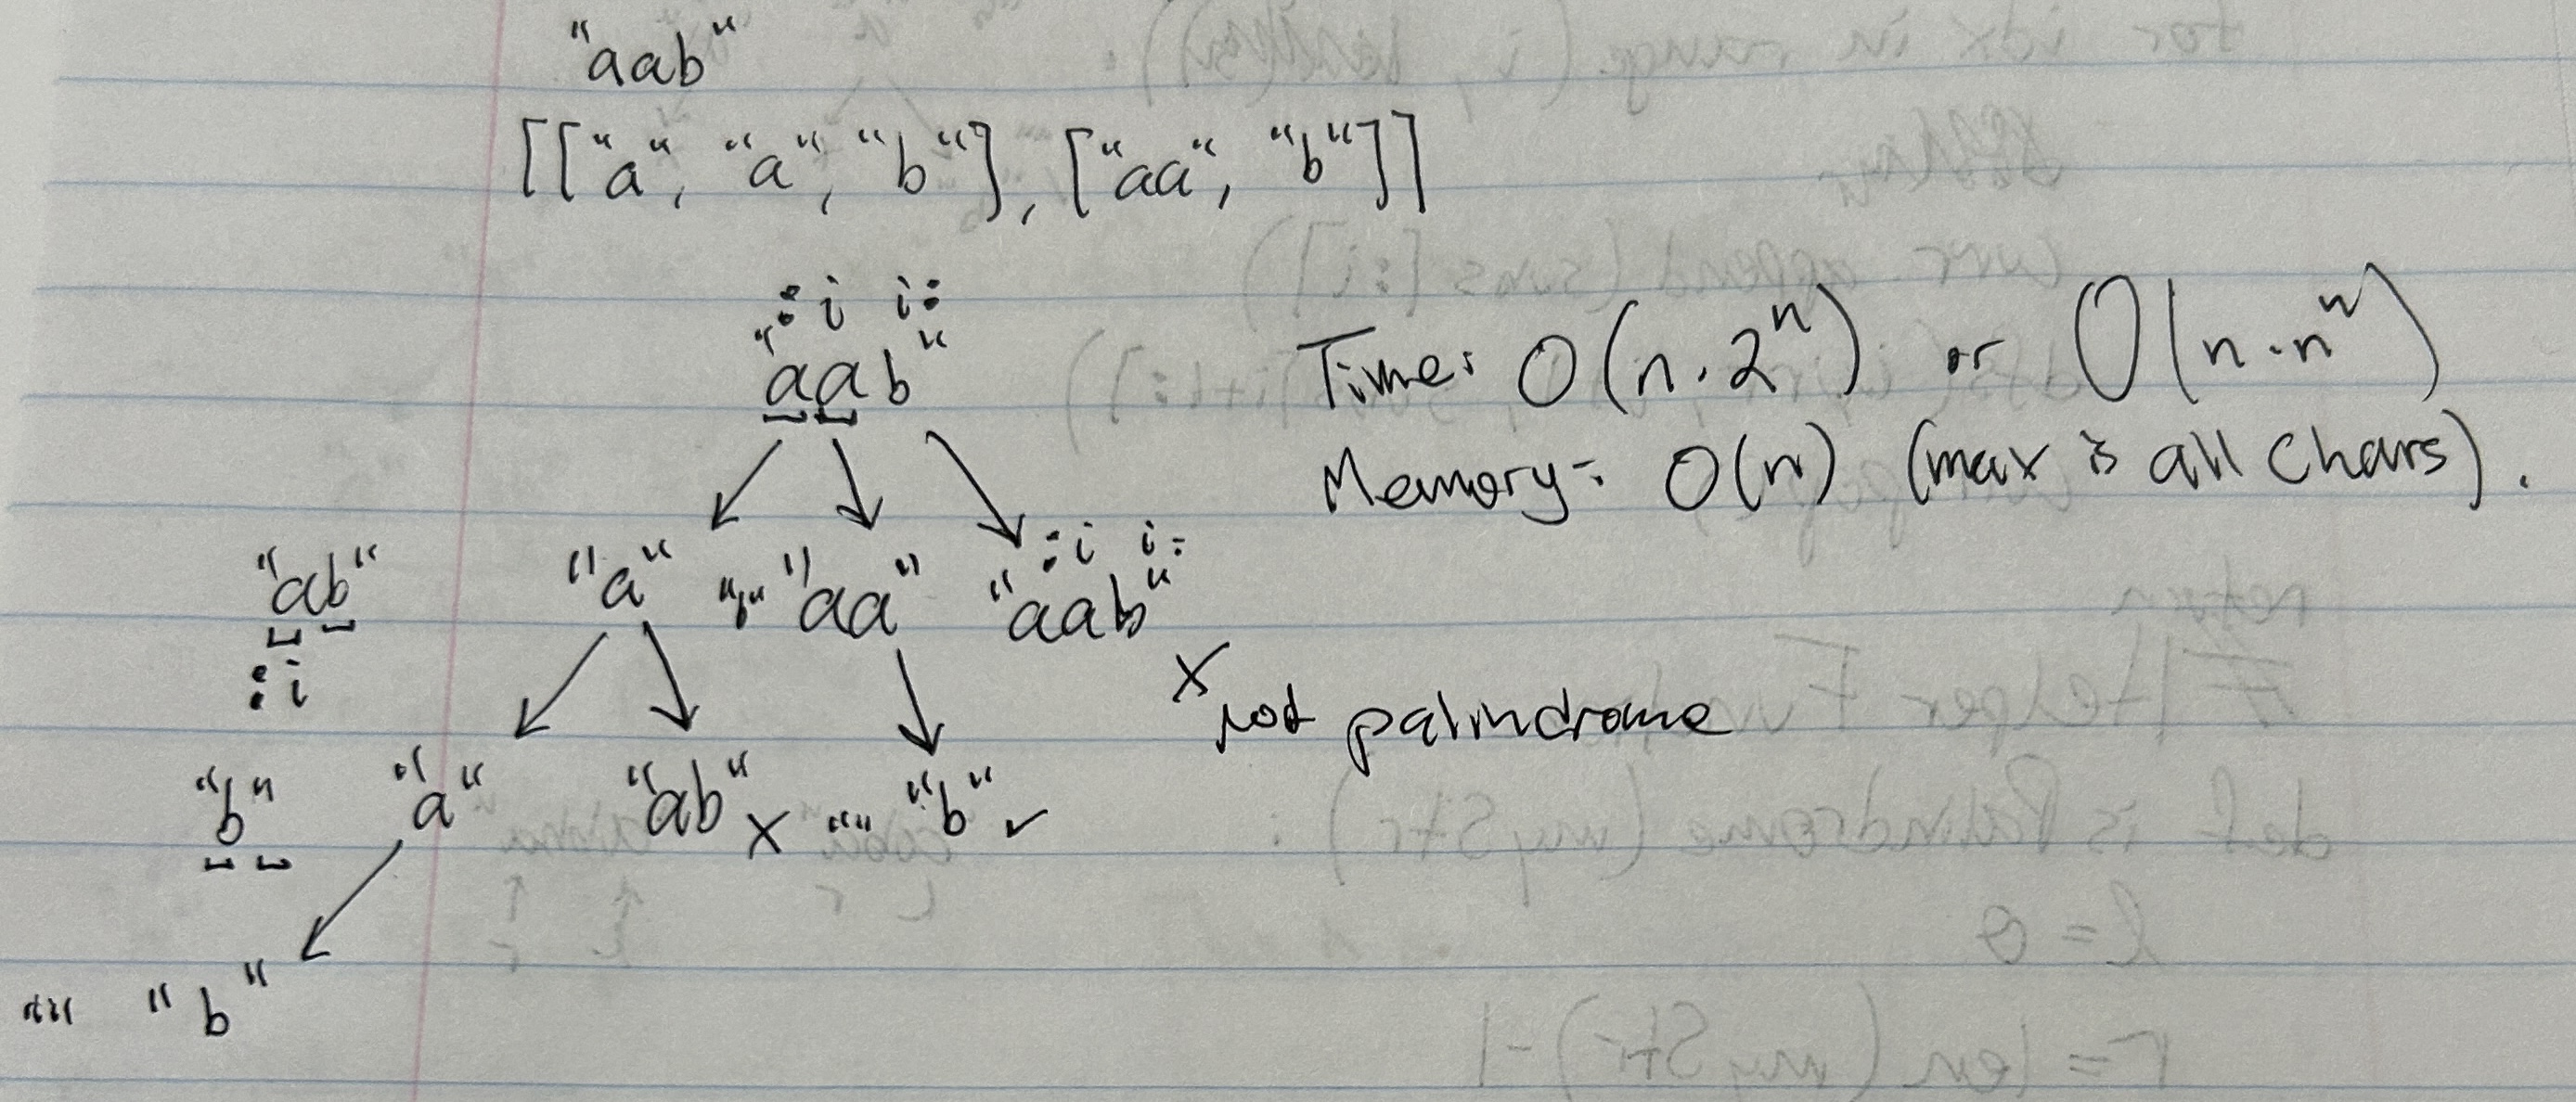 "aab"
[["a", "a", "b"], ["aa", "b"]]
:i i:
"aab"
Time: O(n·2^n) or O(n·n^n)
Memory: O(n) (max is all chars).
:i i:
"ab" "a" "b" "aa" "aab"
:i
x not palindrome
"b" "a" "ab" x "" "b" ✓
"" "b"